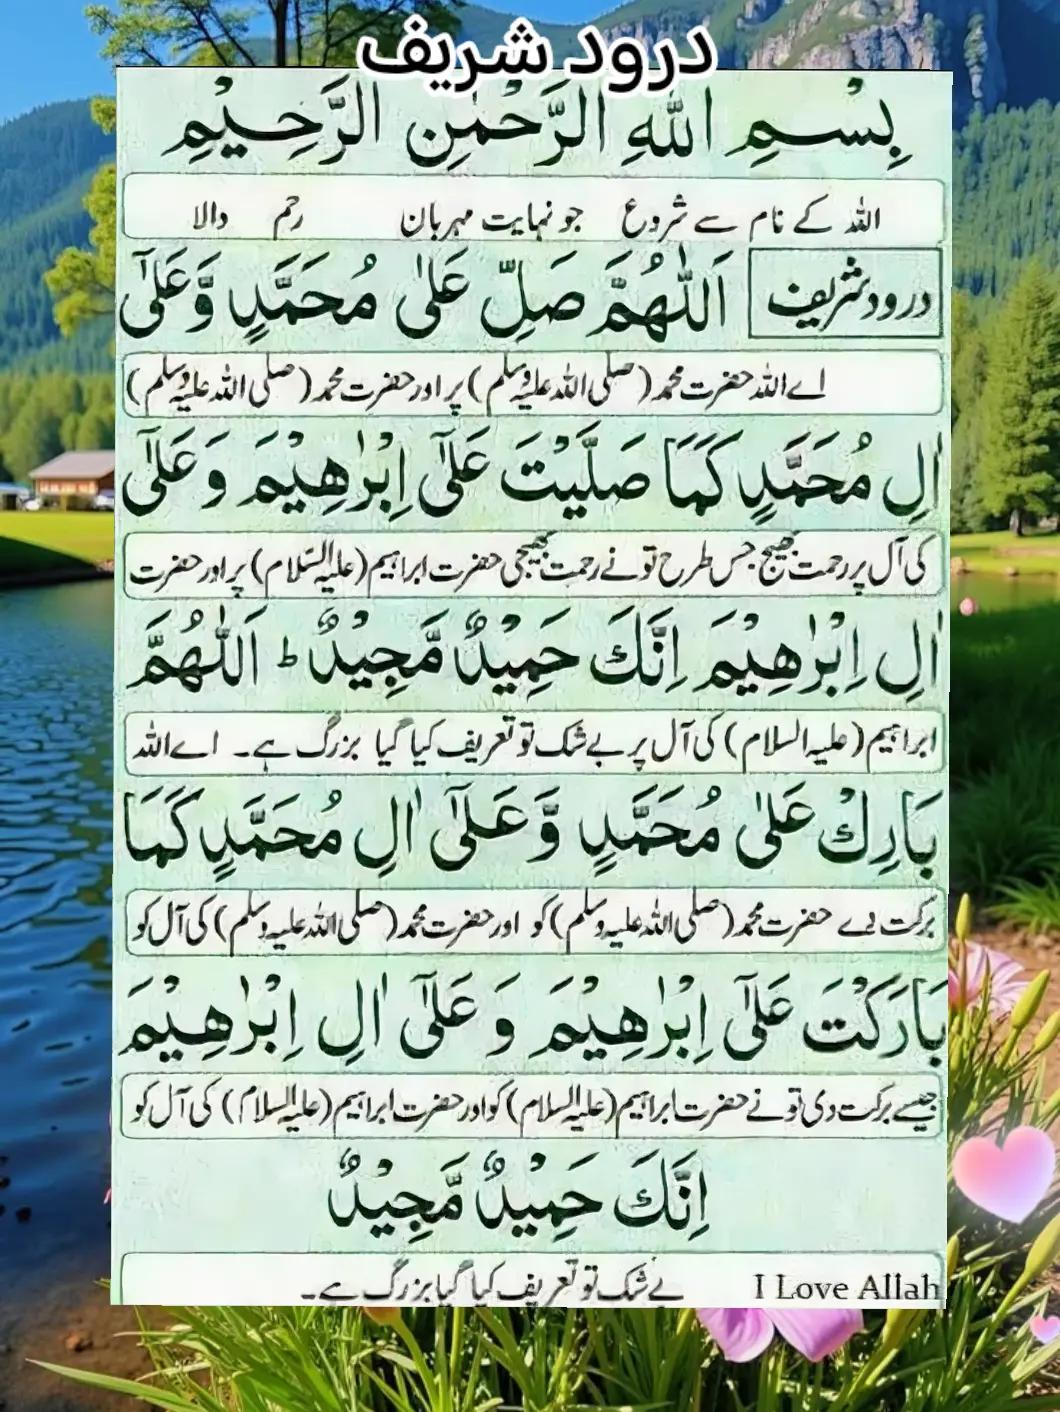 درود شریف
بِسْمِ اللّٰهِ الرَّحْمٰنِ الرَّحِيْمِ
اللہ کے نام سے شروع جو نہایت مہربان رحم والا
درود شریف اَللّٰهُمَّ صَلِّ عَلٰى مُحَمَّدٍ وَّعَلٰٓى
اے اللہ حضرت محمد (صلی اللہ علیہ وسلم) پر اور حضرت محمد (صلی اللہ علیہ وسلم)
اٰلِ مُحَمَّدٍ كَمَا صَلَّيْتَ عَلٰٓى اِبْرٰهِيْمَ وَعَلٰٓى
کی آل پر رحمت بھیج جس طرح تو نے رحمت بھیجی حضرت ابراہیم (علیہ السلام) پر اور حضرت
اٰلِ اِبْرٰهِيْمَ اِنَّكَ حَمِيْدٌ مَّجِيْدٌ ط اَللّٰهُمَّ
ابراہیم (علیہ السلام) کی آل پر بے شک تو تعریف کیا گیا بزرگ ہے۔ اے اللہ
بَارِكْ عَلٰى مُحَمَّدٍ وَّعَلٰٓى اٰلِ مُحَمَّدٍ كَمَا
برکت دے حضرت محمد (صلی اللہ علیہ وسلم) کو اور حضرت محمد (صلی اللہ علیہ وسلم) کی آل کو
بَارَكْتَ عَلٰٓى اِبْرٰهِيْمَ وَعَلٰٓى اٰلِ اِبْرٰهِيْمَ
جیسے برکت دی تو نے حضرت ابراہیم (علیہ السلام) کو اور حضرت ابراہیم (علیہ السلام) کی آل کو
اِنَّكَ حَمِيْدٌ مَّجِيْدٌ
بے شک تو تعریف کیا گیا بزرگ ہے۔ I Love Allah